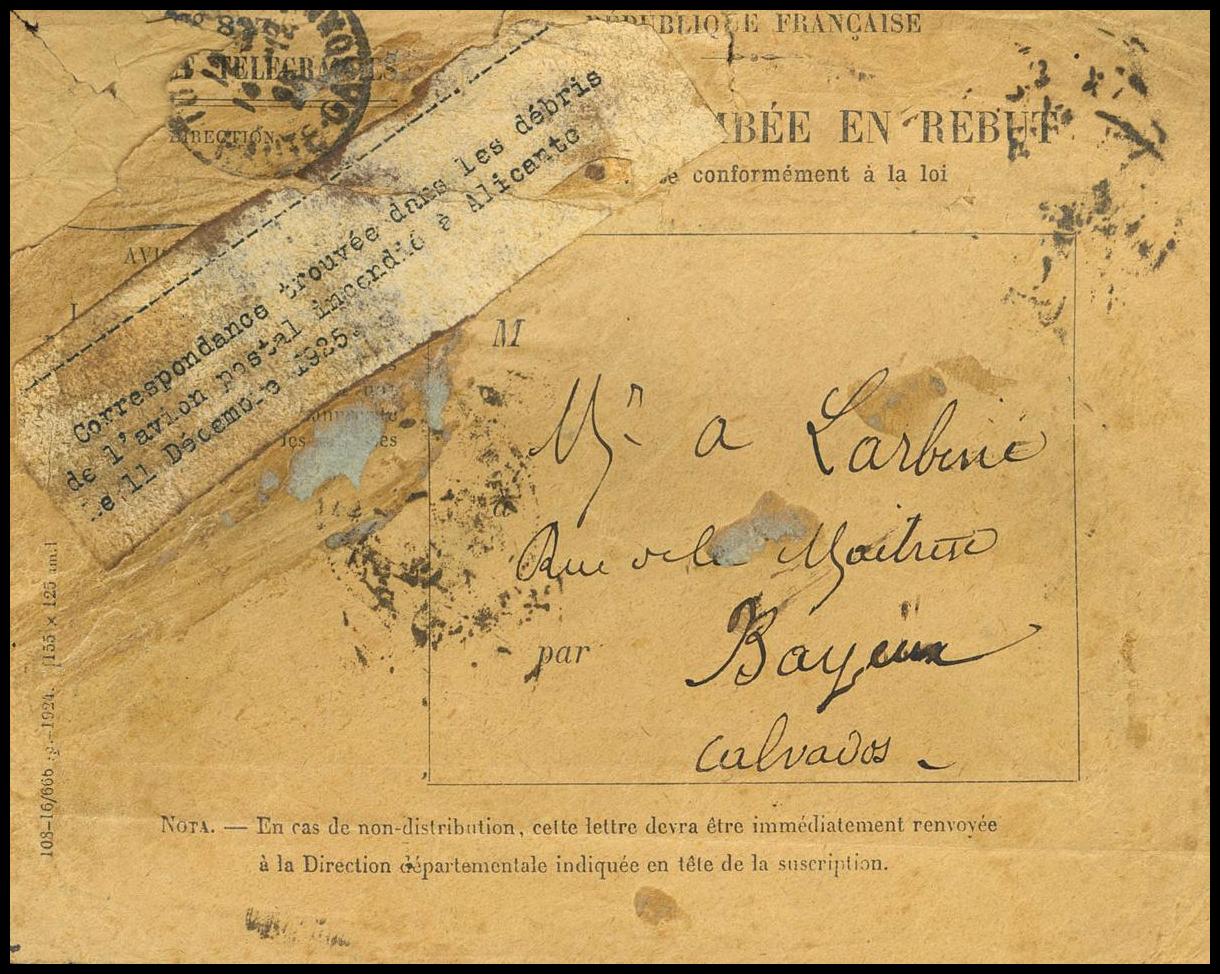 RÉPUBLIQUE FRANÇAISE
TÉLÉGRAPHES
DIRECTION
MBÉE EN REBUT
conformément à la loi
Correspondance trouvée dans les débris
de l'avion postal incendié à Alicante
le 11 Décembre 1925.
M
Mr a Larbinié
Rue de la Maitrise
par
Bayeux
Calvados
108-16/666 1924. [155 × 125
NOTA. — En cas de non-distribution, cette lettre devra être immédiatement renvoyée
à la Direction départementale indiquée en tête de la suscription.